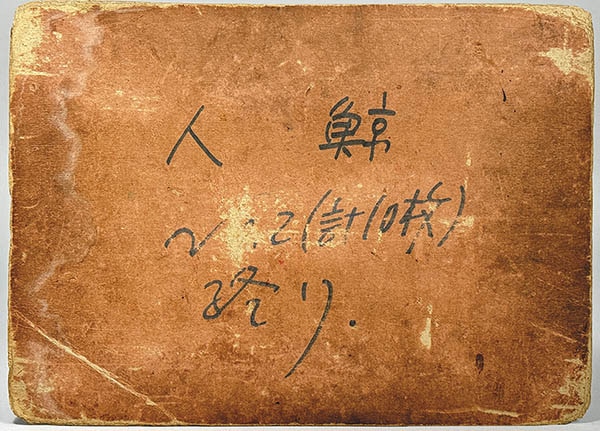 人 鯨
2(計10枚)
終り.